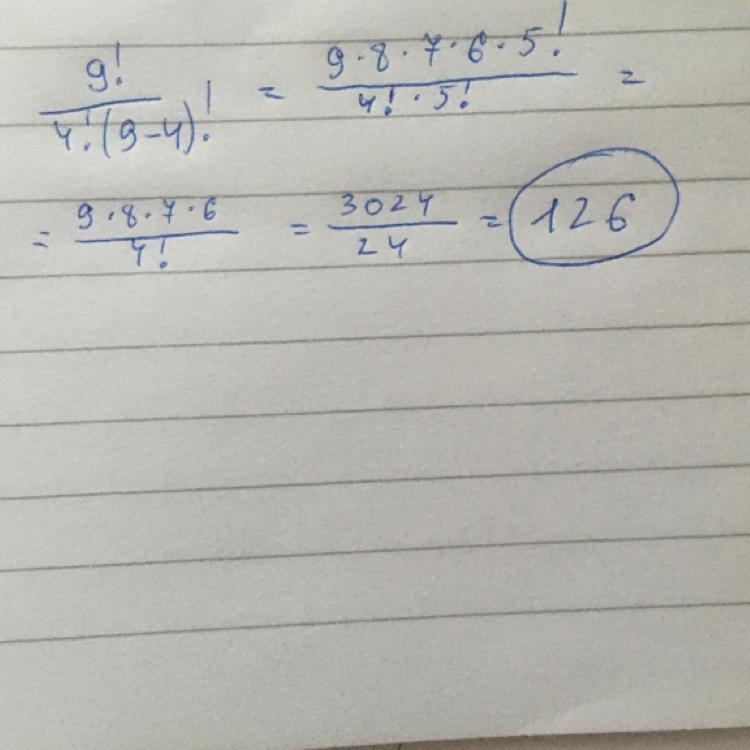 9! / 4!(9-4)! = 9·8·7·6·5! / 4!·5! =
= 9·8·7·6 / 4! = 3024 / 24 = 126